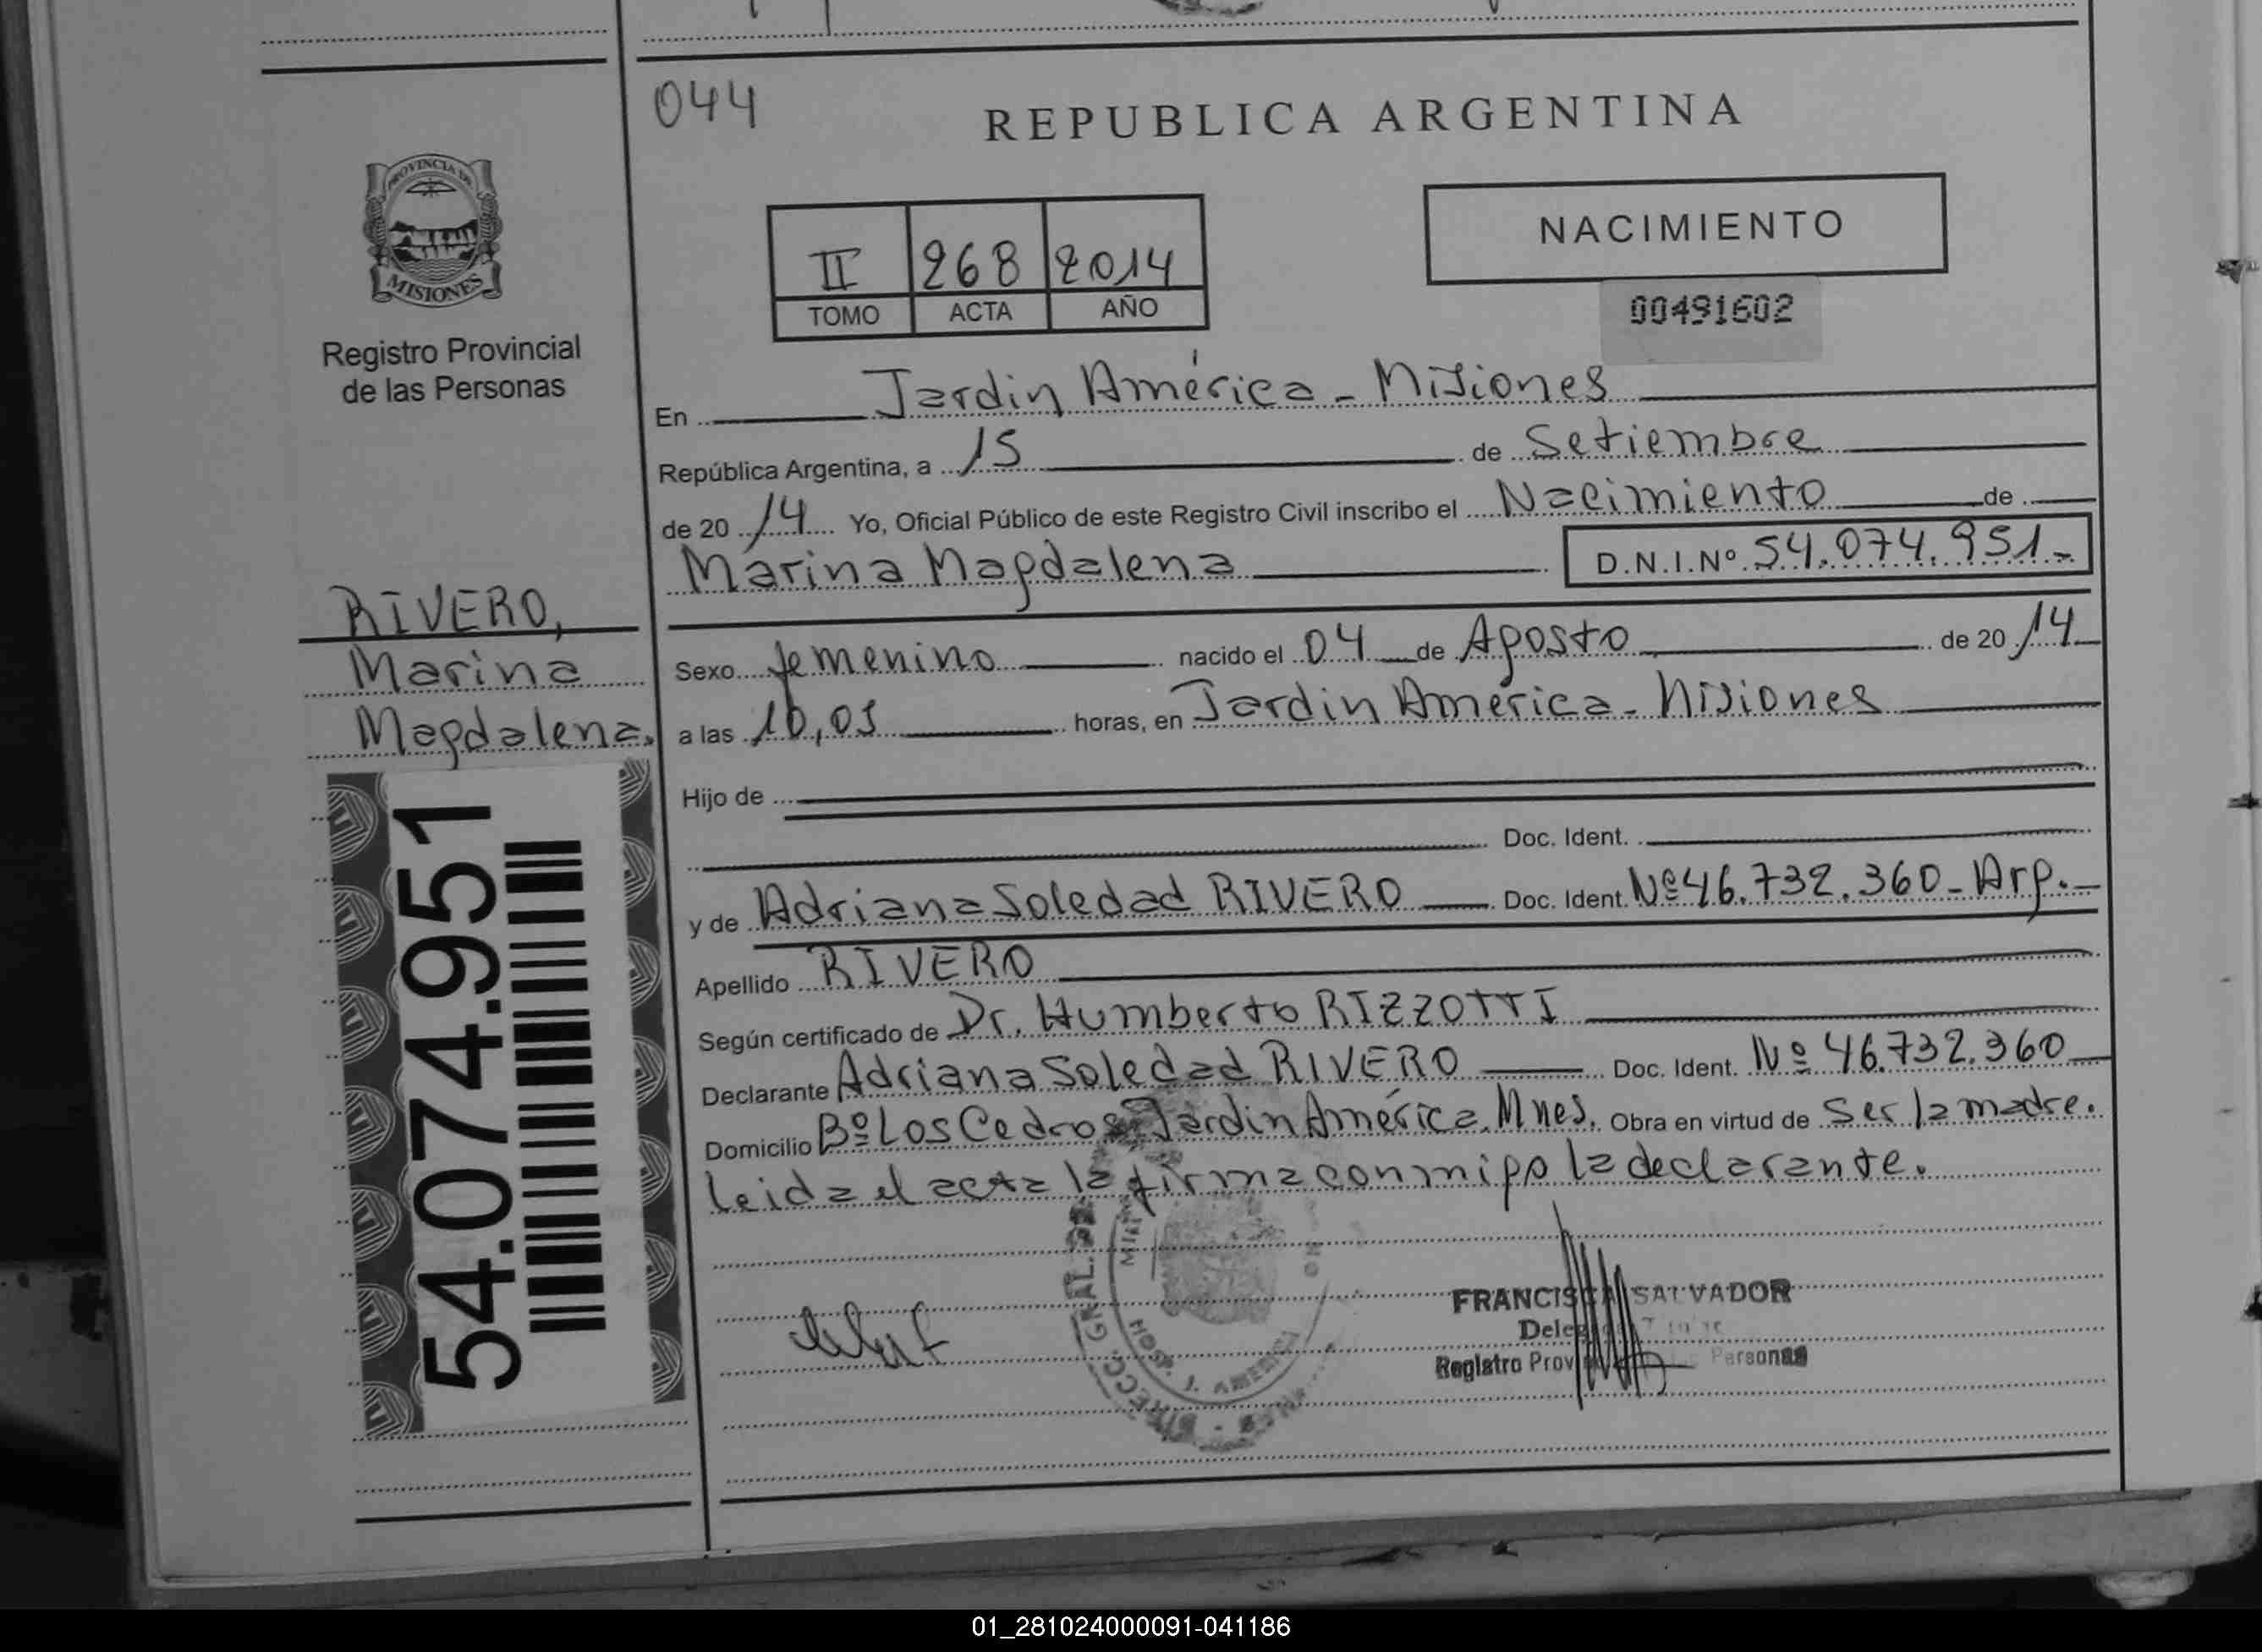 044
REPUBLICA ARGENTINA
PROVINCIA DE
MISIONES
Registro Provincial
de las Personas
II 268 2014
TOMO ACTA AÑO
NACIMIENTO
00491602
En Jardin América - Misiones
República Argentina, a 15 de Setiembre
de 20 14 Yo, Oficial Público de este Registro Civil inscribo el Nacimiento de
Marina Magdalena D.N.I.Nº 54.074.951.-
RIVERO,
Marina
Magdalena.
54.074.951
Sexo femenino nacido el 04 de Agosto de 20 14
a las 10,05 horas, en Jardin América - Misiones
Hijo de
Doc. Ident.
y de Adriana Soledad RIVERO Doc. Ident. Nº 46.732.360 - Arg.
Apellido RIVERO
Según certificado de Dr. Humberto RIZZOTTI
Declarante Adriana Soledad RIVERO Doc. Ident. Nº 46.732.360
Domicilio Bº Los Cedros Jardin América. Mnes. Obra en virtud de Ser la madre.
Leida el acta la firma conmigo la declarante.
DIRECC. GRAL. DE
HOSP. J. AMERICA
FRANCISCA SALVADOR
Registro Prov Personas
01_281024000091-041186